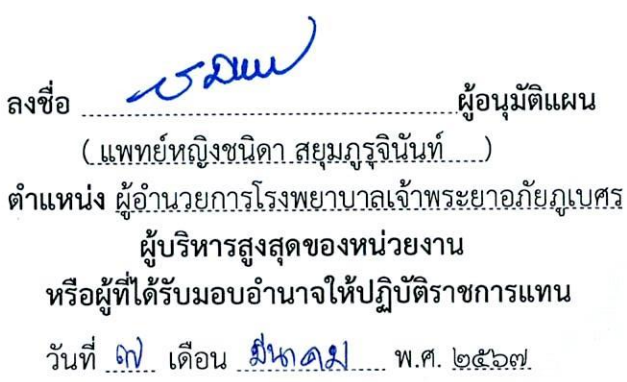 ลงชื่อ ผู้อนุมัติแผน
( แพทย์หญิงชนิดา สยุมภูรุจินันท์ )
ตำแหน่ง ผู้อำนวยการโรงพยาบาลเจ้าพระยาอภัยภูเบศร
ผู้บริหารสูงสุดของหน่วยงาน
หรือผู้ที่ได้รับมอบอำนาจให้ปฏิบัติราชการแทน
วันที่ ๗ เดือน มีนาคม พ.ศ. ๒๕๖๗